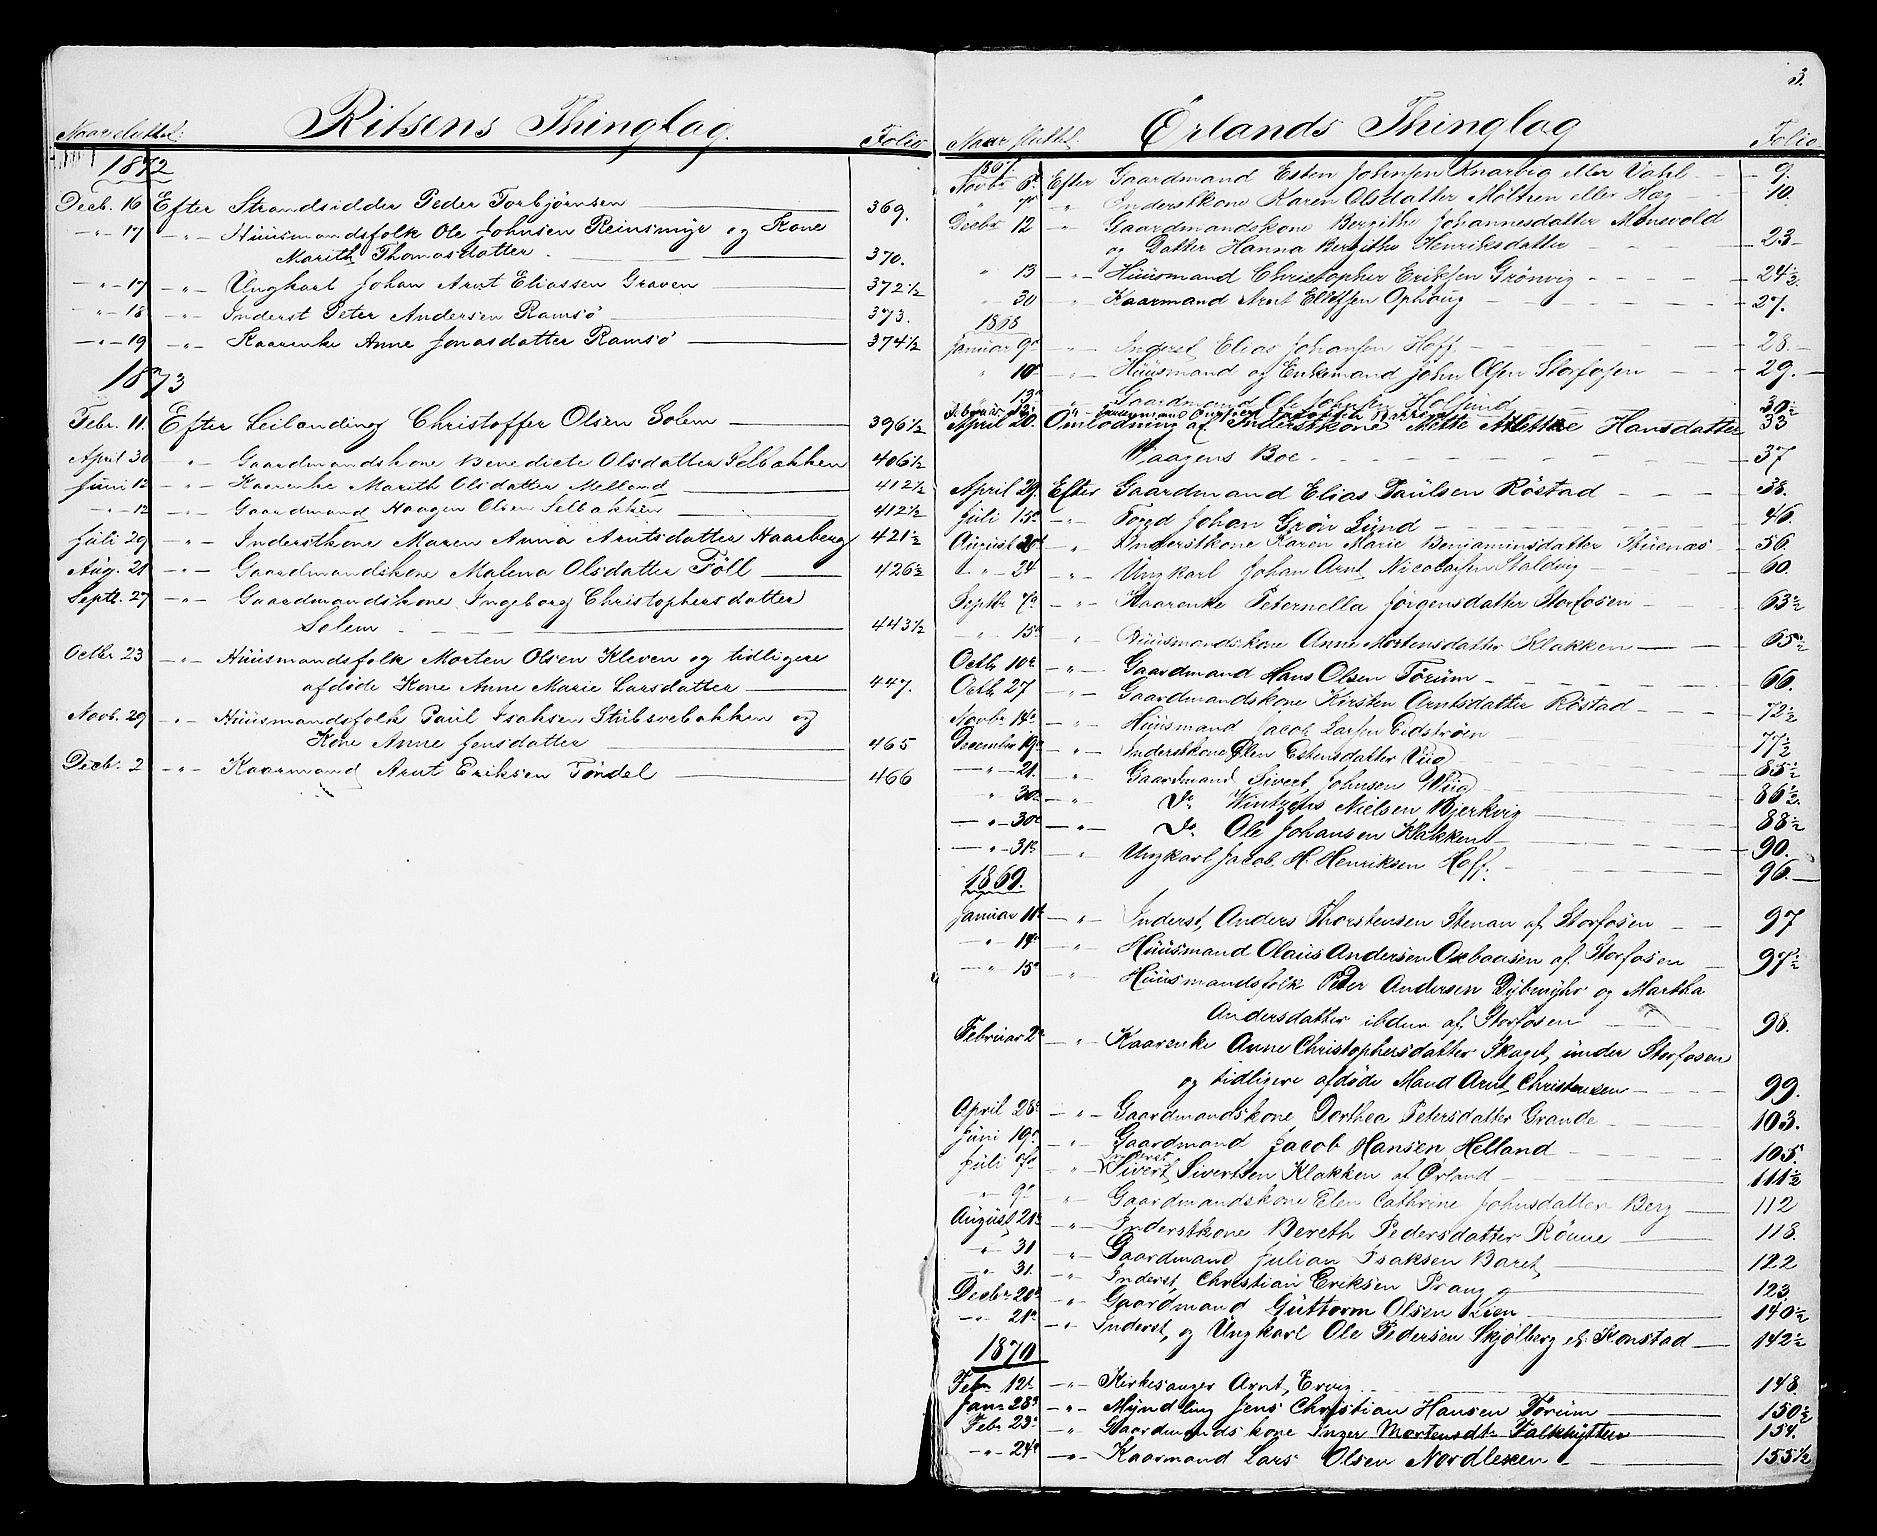 Ritsens Thinglag.
Naar sluttet: Folio
1872
Decb. 16 Efter Strandsidder Peder Torbjørnsen 369.
-"- 17 -"- Huusmandsfolk Ole Johnsen Reinsmyr og Kone
Marith Thomasdatter 370.
-"- 17 -"- Ungkarl Johan Arnt Eliassen Graven 372 1/2
-"- 18 -"- Inderst Peter Andersen Ramsø 373.
-"- 19 -"- Kaarenke Anne Jonasdatter Ramsø 374 1/2
1873
Febr. 11. Efter Leilending Christoffer Olsen Solem 396 1/2
April 30 -"- Gaardmandskone Benedicte Olsdatter Selbækken 406 1/2
Juni 12 -"- Kaarenke Marith Olsdatter Melland 412 1/2
-"- 12 -"- Gaardmand Haagen Olsen Selbækken 412 1/2
Juli 29 -"- Inderstkone Maren Anna Arntsdatter Haarberg 421 1/2
Aug. 21 -"- Gaardmandskone Malena Olsdatter Föll 426 1/2
Septb. 27 -"- Gaardmandskone Ingeborg Christophersdatter
Solem 443 1/2
Octbr 23 -"- Huusmandsfolk Morten Olsen Kleven og tidligere
afdøde Kone Anne Marie Larsdatter 447.
Novb. 29 -"- Huusmandsfolk Paul Isaksen Stubsvebakken og
Kone Anne Jensdatter 465
Decb. 2 -"- Kaarmand Arnt Eriksen Tøndel 466
3.
Ørlands Thinglag
Naar sluttet: Folio
1867.
Novbr 6te Efter Gaardmand Esten Johnsen Knarvig eller Vahl 9.
" 7de -"- Inderstkone Karen Olsdatter Meltren eller Hæg 10.
Decbr 12 -"- Gaardmandskone Bergithe Johannesdatter Monsvold
og Datter Hanna Bergithe Henriksdatter 23
" 13 -"- Huusmand Christopher Eriksen Grønvig 24 1/2.
" 30 " Kaarmand Arnt Ellefsen Ophaug 27.
1868
Januar 9de " Inderst Elias Johansen Hoff 28.
" 10de -"- Huusmand og Enkemand John Olsen Storfosen 29.
" 13de -"- Gaardmand Ole Johnsen 30 1/2
Februar 12 -"- Gaardmand 33
April 20. Omlodning af Inderstkone Mette Mettine Hansdatter
Vaagens Boe 37
April 29. Efter Gaardmand Elias Paulsen Röstad 38.
Juli 15de -"- Foged Johan Grön Lund 46.
August 20de " Inderstkone Karen Marie Benjaminsdatter Stuenæs 56.
-"- 24 -"- Ungkarl Johan Arnt Nicolaisen Staldvig 60.
Septbr 7de -"- Kaarenke Peternella Jørgensdatter Storfosen 63 1/2
-"- 15de " Huusmandskone Anne Mortensdatter Klakken 65 1/2
Octbr 10de " Gaardmand Hans OlsenFörum 66.
Octb 27 -"- Gaardmandskone Kirsten Arntsdatter Röstad 72 1/2
Novbr 14de " Huusmand Jacob Larsen Eidstrøen 77 1/2
December 19de -"- Inderstkone Elen Estensdatter Viig 85 1/2
-"- 21. " Gaardmand Sivert Johnsen Wiig 86 1/2.
" 30de -"- Do Wintzens Nielsen Bjerkvig 88 1/2
-"- 30te -"- Do Ole Johansen Klakken 90.
-"- 31te " Ungkarl Jacob H. Henriksen Hoff. 96.
1869.
Januar 11te -"- Inderst, Anders Thorstensen Stenan af Storfosen 97
-"- 14de " Huusmand Olaus Andersen Oxbaasen af Storfosen 97 1/2
-"- 15de " Huusmandsfolk Peter Andersen Dybvighr og Martha
Andersdatter ibdm af Storfosen 98.
Februar 2de -"- Kaarenke Anne Christophersdatter Skaget, under Storfosen
og tidligere afdøde Mand Arnt Christensen 99.
April 28de -"- Gaardmandskone Dorthea Petersdatter Grande 103.
Juni 19de " Gaardmand Jacob Hansen Helland 105.
Juli 7de " Inderst Sivert Sivertsen Klakken af Ørland 111 1/2
" 9de " Gaardmandskone Elen Cathrine Johnsdatter Berg 112
August 21de -"- Inderstkone Bereth Pedersdatter Rønne 118.
-"- 31 " Gaardmand Julian Isaksen Baret 122
-"- 31. " Inderst, Christian Eriksen Prang 123.
Decbr 20de " Gaardmand Guttorm Olsen Lien 140 1/2
-"- 21de -"- Inderst, og Ungkarl Ole Pedersen Skjølberg el. Konstad 142 1/2
1870
Febr 12te -"- Kirkesanger Arnt, Ervig 148.
Janr 28de -"- Myndling Jens Christian Hansen Förum 150 1/2
Febr 23de -"- Gaardmandskone Inger Mortensdtr Falkhytten 154.
-"- 24de -"- Kaarmand Lars Olsen Nordlexen 155 1/2